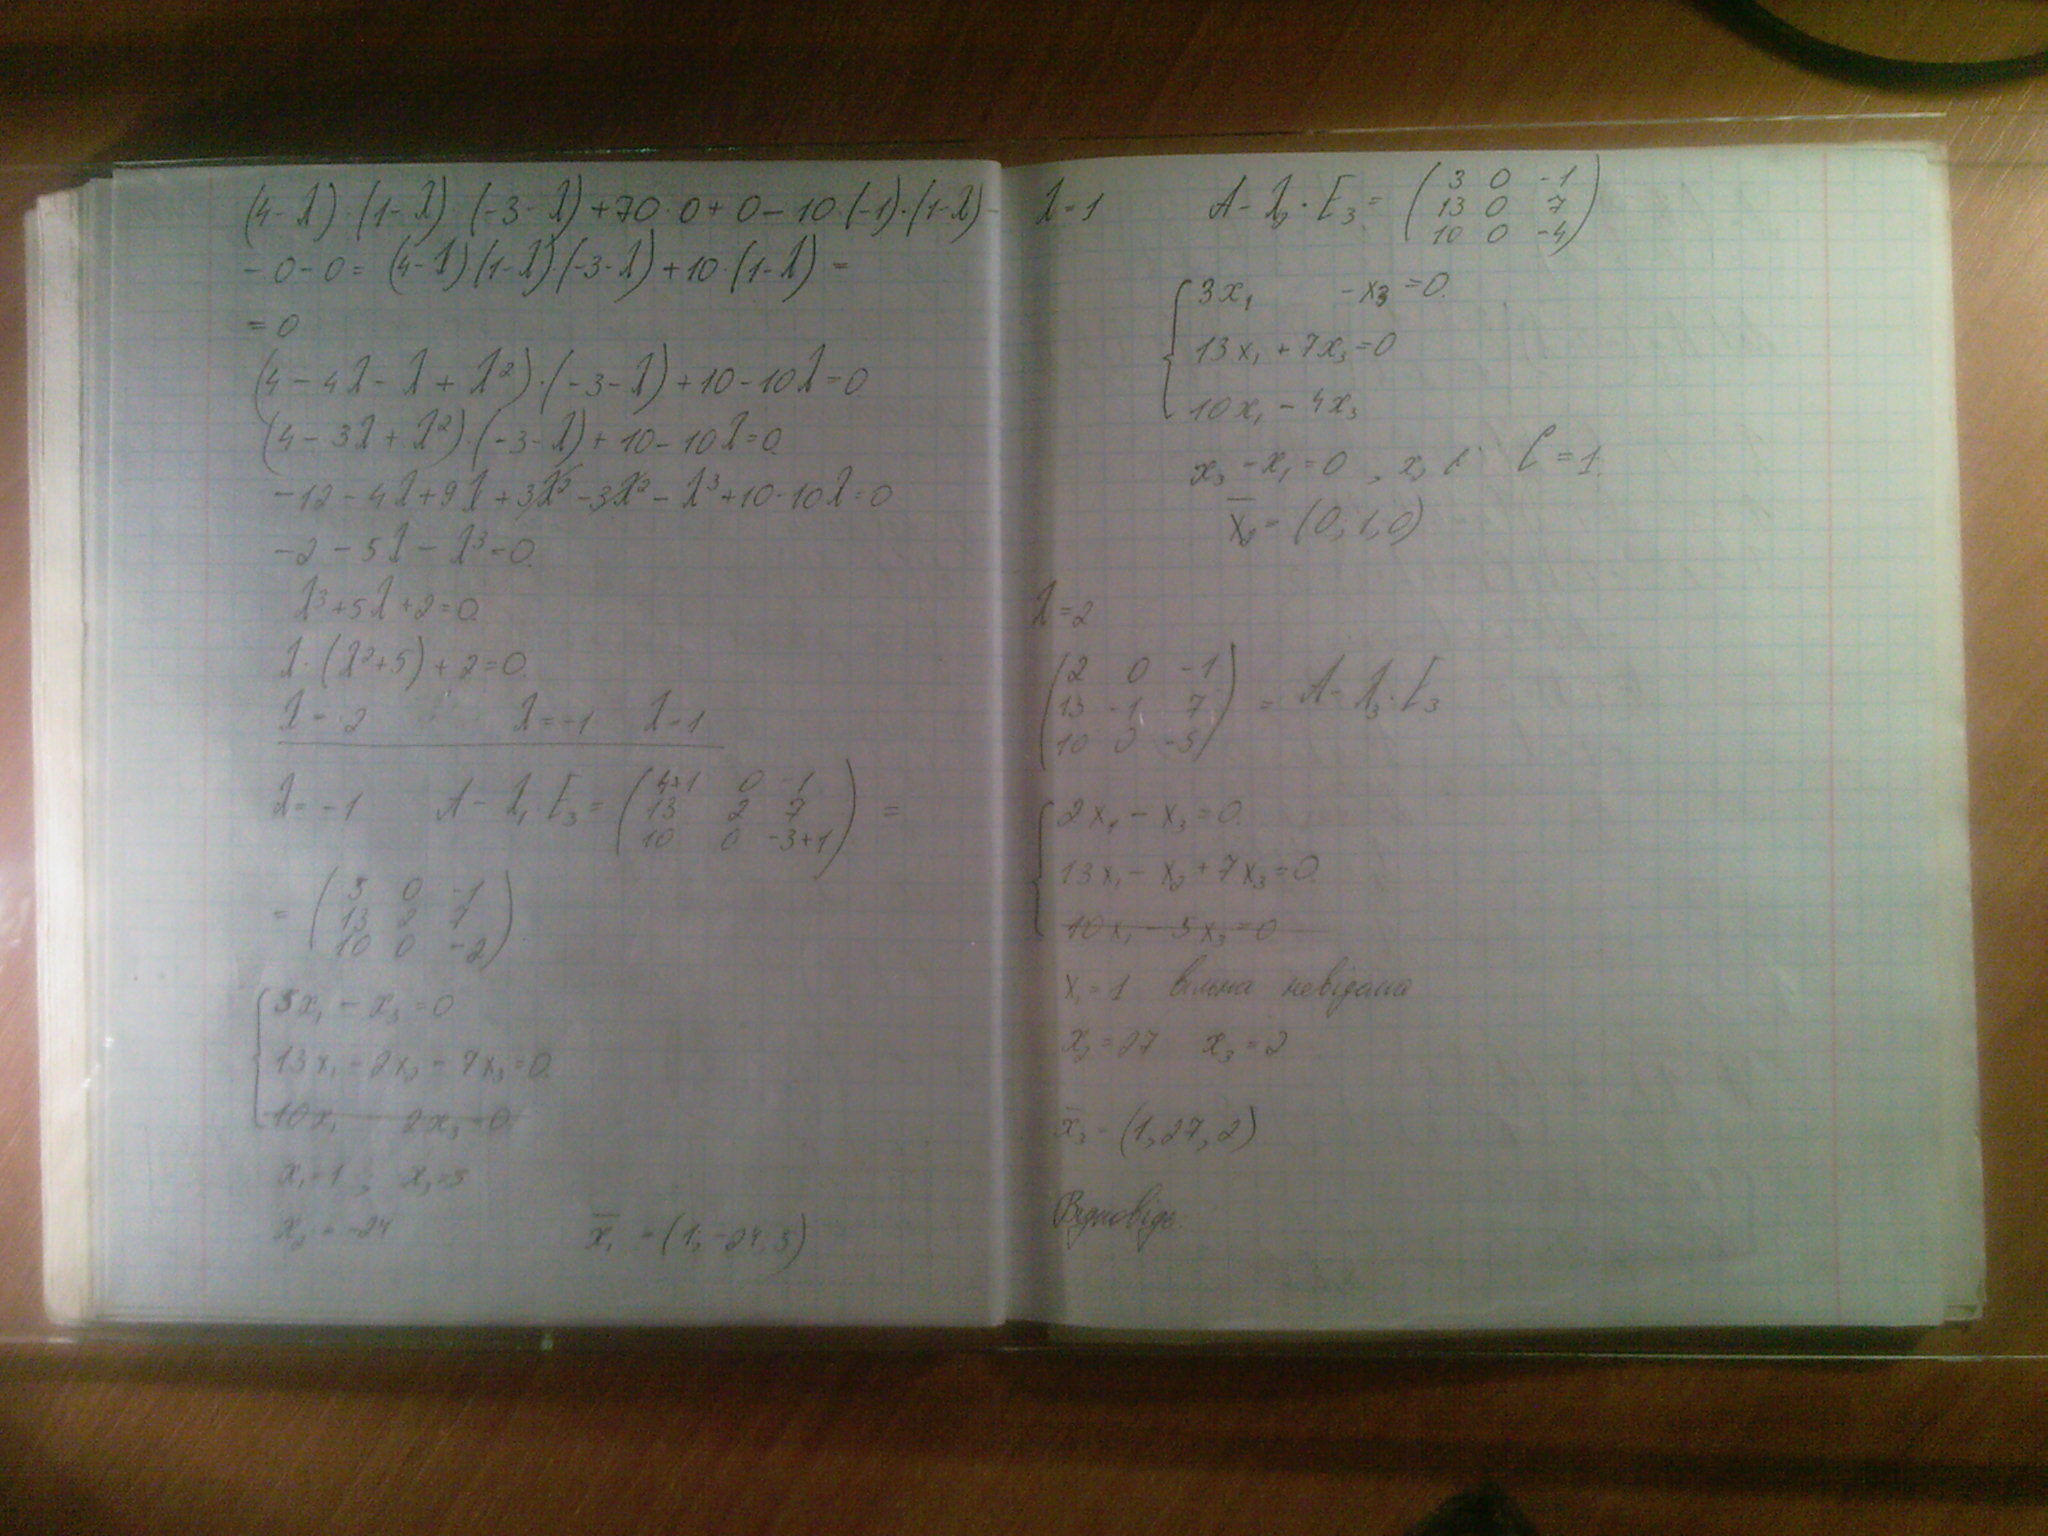 (4-λ)·(1-λ)·(-3-λ)+70·0+0-10·(-1)·(1-λ)-
-0-0=(4-λ)(1-λ)·(-3-λ)+10·(1-λ)=
=0
(4-4λ-λ+λ²)·(-3-λ)+10-10λ=0
(4-3λ+λ²)·(-3-λ)+10-10λ=0
-12-4λ+9λ+3λ²-3λ²-λ³+10-10λ=0
-2-5λ-λ³=0.
λ³+5λ+2=0
λ·(λ²+5)+2=0
λ=2 λ=-1 λ=1
λ=-1 A-λ₁·E₃=(4+1 0 -1
13 2 7
10 0 -3+1) =
=(5 0 -1
13 2 7
10 0 -2)
5x₁-x₃=0
13x₁-2x₂-7x₃=0
10x₁-2x₃=0
x₁=1, x₃=5
x₂=-24 x̄₁=(1,-24,5)
λ=1 A-λ₂·E₃=(3 0 -1
13 0 7
10 0 -4)
3x₁ -x₃=0
13x₁+7x₃=0
10x₁-4x₃
x₃-x₁=0, C=1.
x̄₂=(0,1,0)
λ=2
(2 0 -1
13 -1 7
10 0 -5) = A-λ₃·E₃
2x₁-x₃=0
13x₁-x₂+7x₃=0
10x₁-5x₃=0
x₁=1 вільна невідома
x₂=27 x₃=2
x̄₃=(1,27,2)
Відповідь: